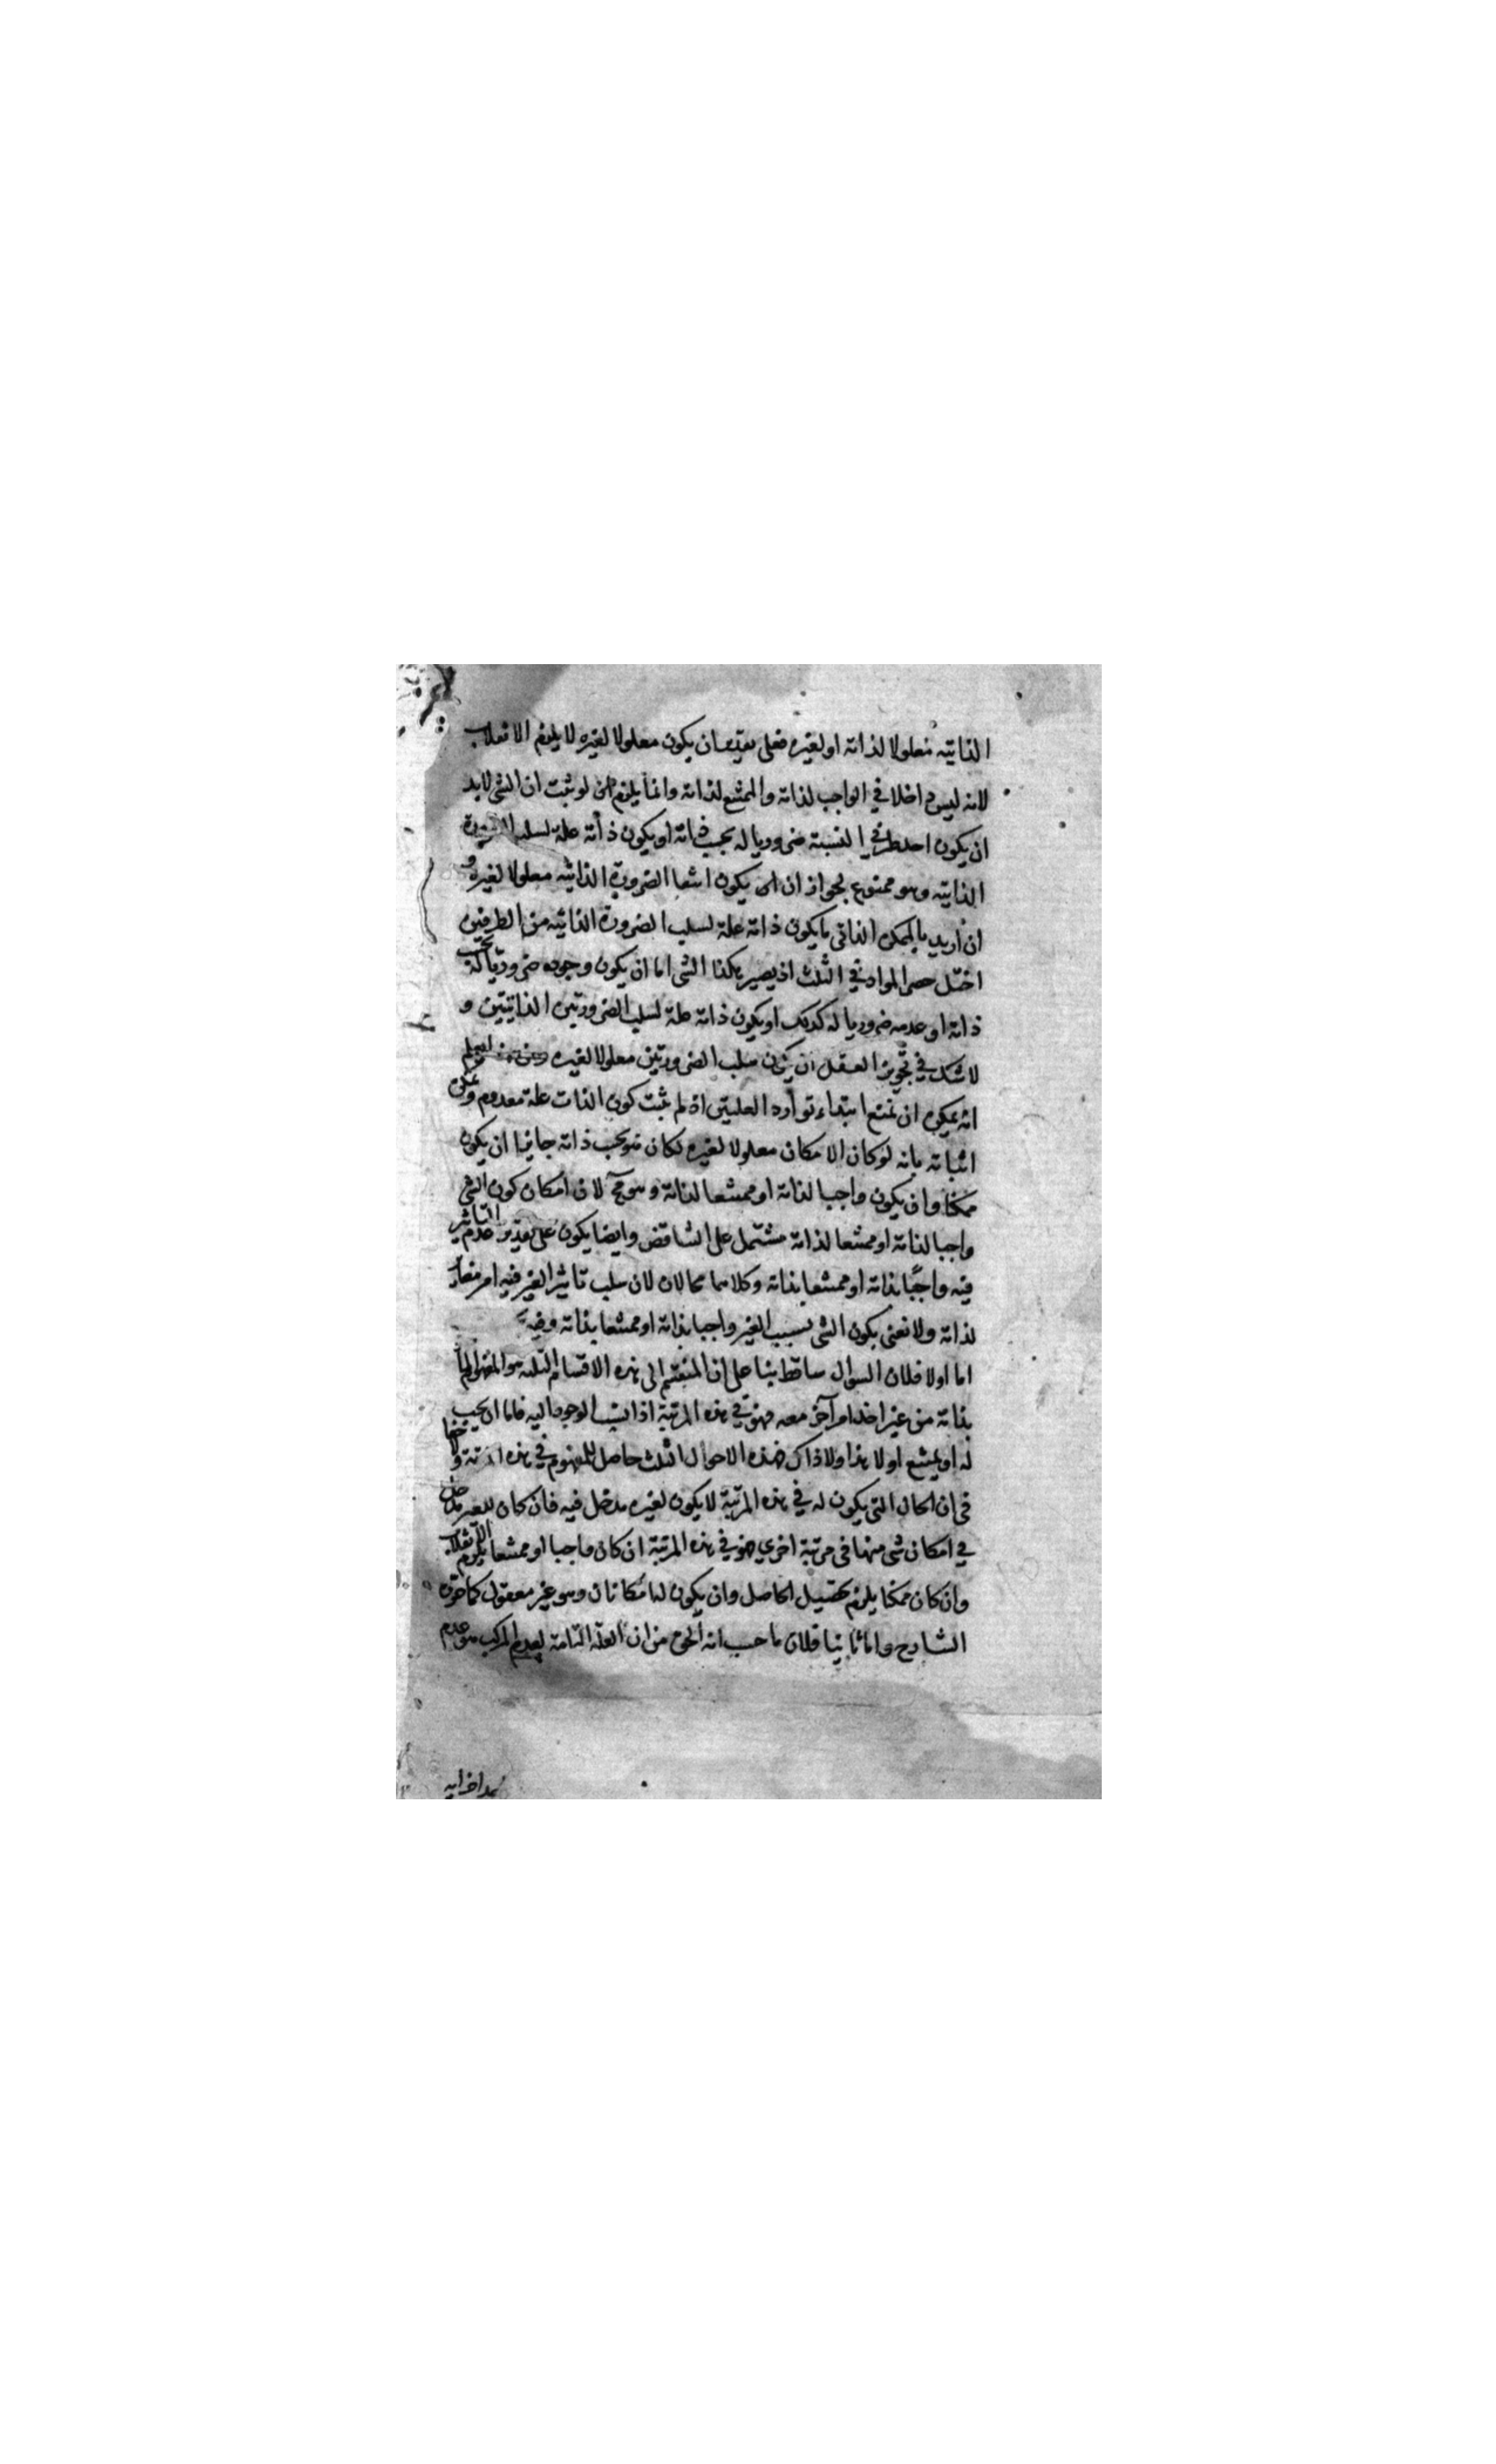 الذاتيه معلولا لذاته او لغيره فعلى تقدير ان يكون معلولا لغيره لا يلزم الانقلاب
لانه ليس داخلا في الواجب لذاته والممتنع لذاته وانما يلزم لو ثبت ان الشى لابد
ان يكون احد طرفي النسبة ضروريا له بحسب ذاته او يكون ذاته علة لسلب الضرورة
الذاتيه وهو ممنوع لجواز ان يكون انتفا الضرورة الذاتيه معلولا لغيره و
ان اريد بالممكن الذاتى ما يكون ذاته علة لسلب الضرورة الذاتيه من الطرفين
اختل حصر المواد في الثلث اذ يصير هكذا الشى اما ان يكون وجوده ضروريا له بحسب
ذاته او عدمه ضروريا له كذلك او يكون ذاته علة لسلب الضرورتين الذاتيتين و
لا شك في تجويز العقل ان يكون سلب الضرورتين معلولا لغيره
انه يمكن ان يمنع ابتداء توارد العلتين اذ لم يثبت كون الذات علة معدوم ويمكن
اثباته بانه لو كان الامكان معلولا لغيره لكان هو بحسب ذاته جايزا ان يكون
ممكنا وان يكون واجبا لذاته او ممتنعا لذاته وهو مح لان امكان كون الشى
واجبا لذاته او ممتنعا لذاته مشتمل على التناقض وايضا يكون على تقدير عدم التاثير
فيه واجبا بذاته او ممتنعا بذاته وكلاهما محالان لان سلب تاثير الغير فيه امر مغاير
لذاته ولا نعنى بكون الشى بسبب الغير واجبا بذاته او ممتنعا بذاته وفيه
اما اولا فلان السؤال ساقط بنا على ان المنقسم الى هذه الاقسام الثلثه هو المفهوم
بذاته من غير اخذ امر آخر معه فهو في هذه المرتبة اذا نسب الوجود اليه فاما ان يجب
له او يمتنع او لا هذا ولا ذاك فهذه الاحوال الثلث حاصل للمفهوم في هذه المرتبة ولا خفا
فى ان الحال التى يكون له في هذه المرتبة لا يكون لغيره مدخل فيه فان كان للغير مدخل
في امكان شى منها فى مرتبة اخرى فهو في هذه المرتبة ان كان واجبا او ممتنعا يلزم الانقلاب
وان كان ممكنا يلزم تحصيل الحاصل وان يكون لها مكانان وهو غير معقول كما
الشارح واما ثانيا فلان ما حسب انه الحق من ان العلة التامة لعدم المركب هو عدم